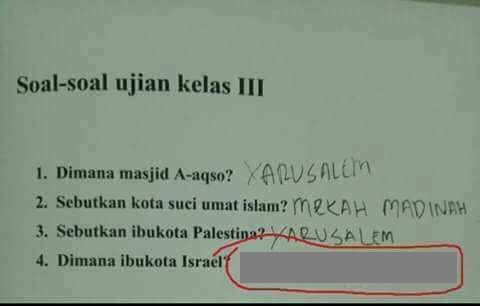 Soal-soal ujian kelas III
1. Dimana masjid A-aqso? YARUSALEM
2. Sebutkan kota suci umat islam? MEKAH MADINAH
3. Sebutkan ibukota Palestina? YARUSALEM
4. Dimana ibukota Israel?